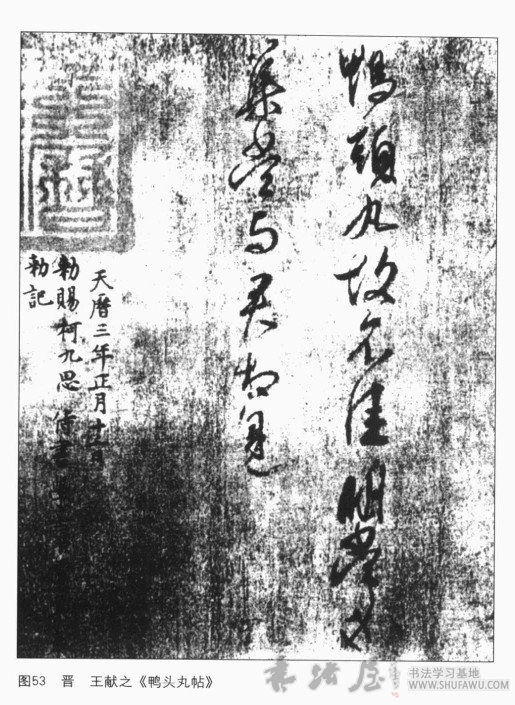 鴨頭丸故不佳明當必
集當与君相見
天曆三年正月十二日
勅賜柯九思侍書
勅記
图53 晋 王献之《鸭头丸帖》
书法屋
书法学习基地
WWW.SHUFAWU.COM